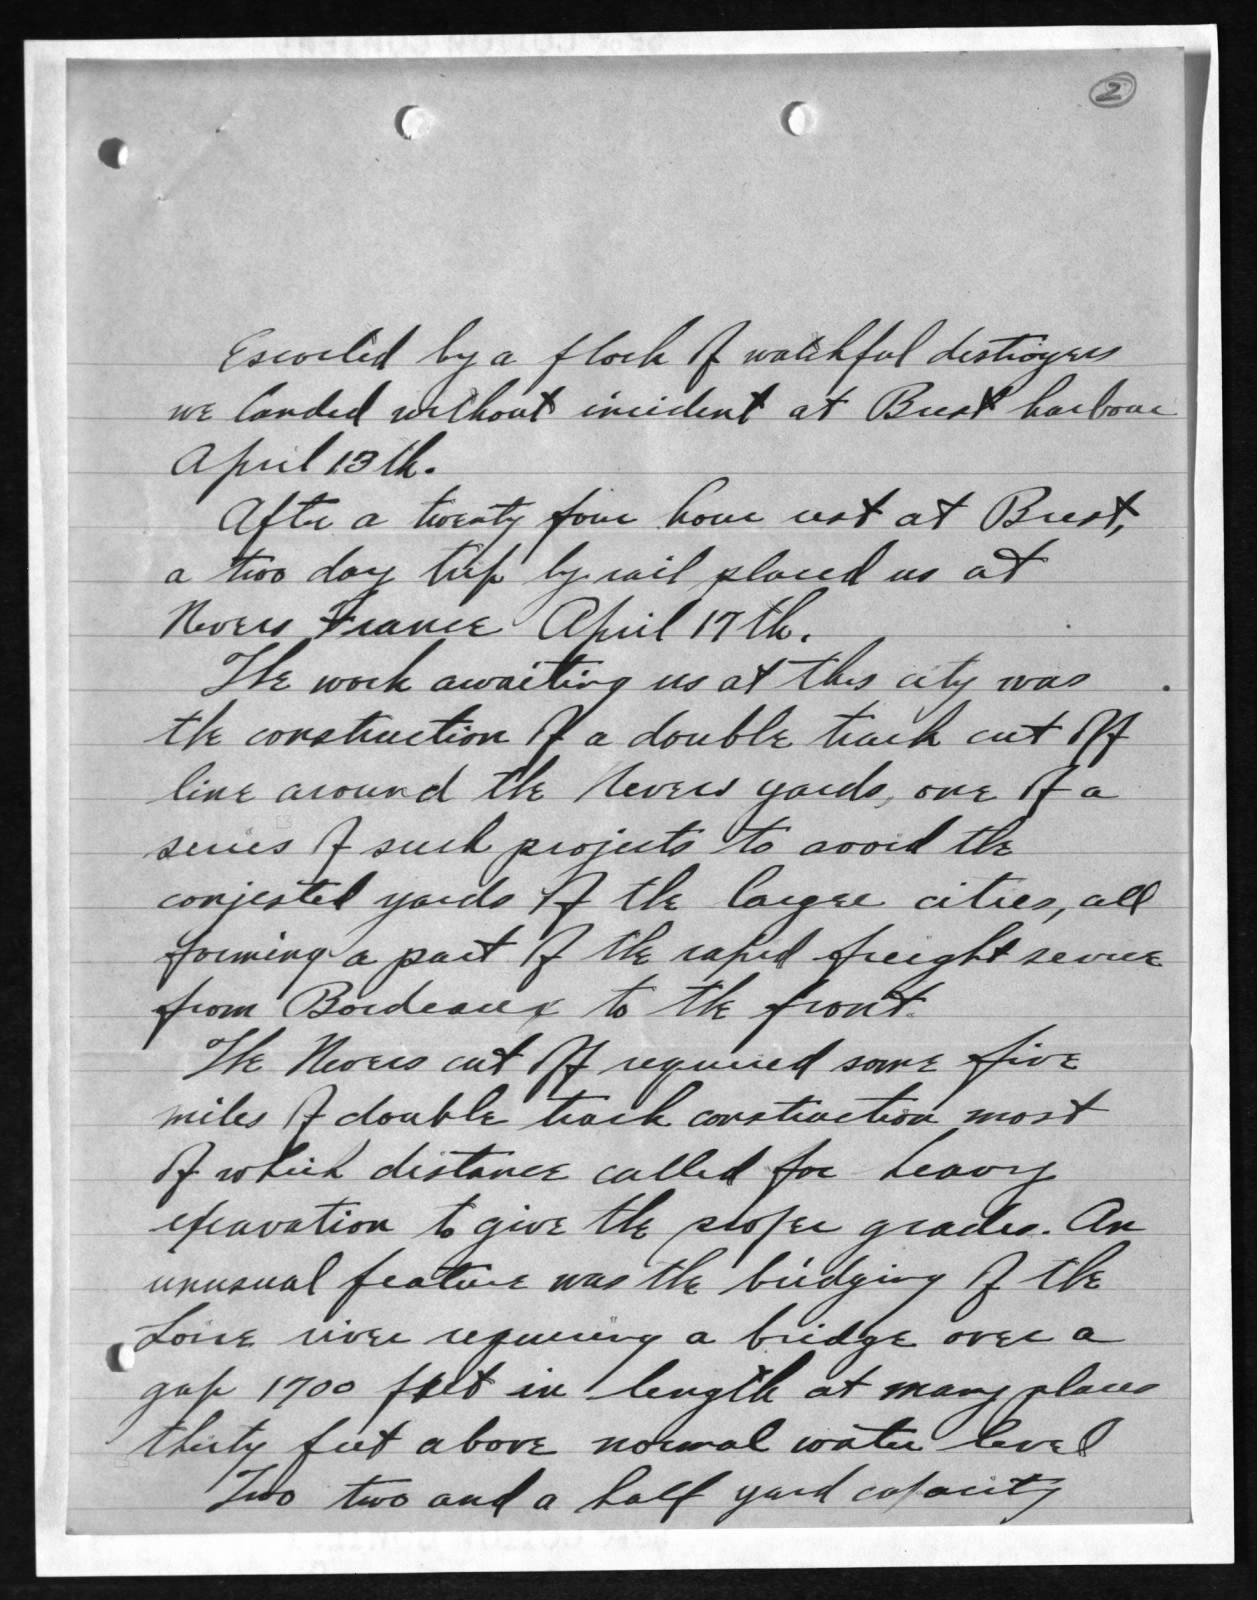 2
Escorted by a flock of watchful destroyers
we landed without incident at Brest harbour
April 13th.
After a twenty four hour rest at Brest,
a two day trip by rail placed us at
Nevers France April 17th.
The work awaiting us at this city was
the construction of a double track cut off
line around the Nevers yards, one of a
series of such projects to avoid the
conjested yards of the larger cities, all
forming a part of the rapid freight service
from Bordeaux to the front.
The Nevers cut off required some five
miles of double track construction most
of which distance called for heavy
excavation to give the proper grades. An
unusual feature was the bridging of the
Loire river requiring a bridge over a
gap 1700 feet in length at many places
thirty feet above normal water level
Two two and a half yard capacity